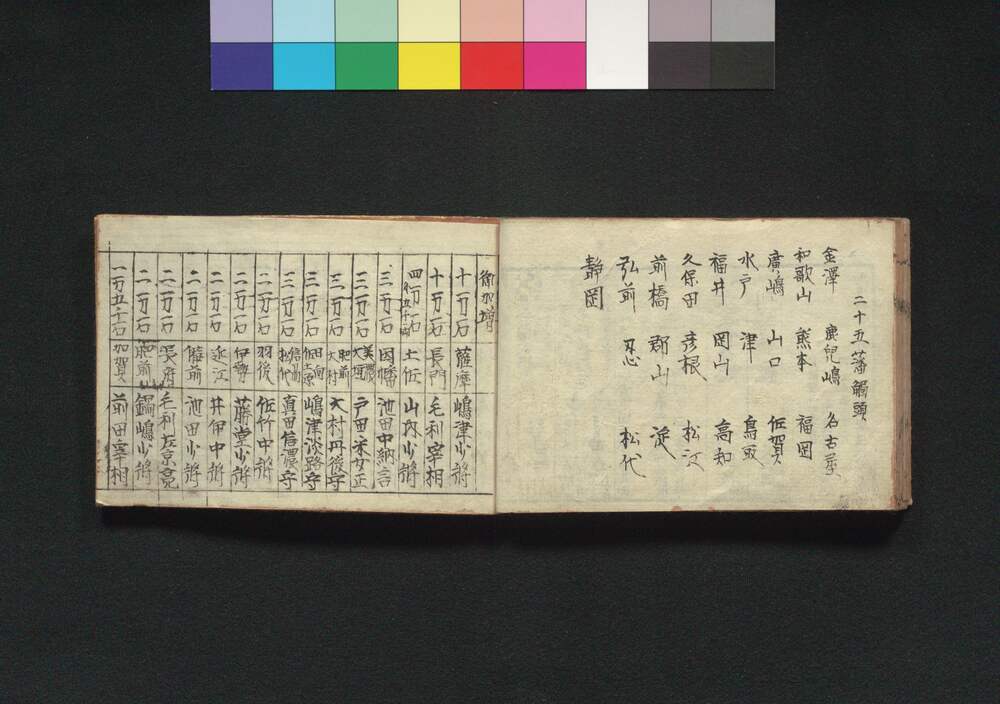 二十五藩觸頭
金澤 鹿兒嶋 名古屋
和歌山 熊本 福岡
廣嶋 山口 佐賀
水戸 津 鳥取
福井 岡山 高知
久保田 彦根 松江
前橋 郡山 淀
弘前 忍 松代
静岡
御加増
十二万石 薩摩 嶋津少将
十二万石 長門 毛利宰相
四万石 土佐 山内少将
三万石 因幡 池田中納言
三万石 美濃大垣 戸田采女正
三万石 肥前大村 大村丹後守
三万石 日向佐土原 嶋津淡路守
三万石 信州松代 真田信濃守
二万石 羽後 佐竹中将
二万石 伊勢 藤堂少将
二万石 近江 井伊中将
二万石 備前 池田少将
二万石 長府 毛利左京亮
二万石 肥前 鍋嶋少将
一万五千石 加賀 前田宰相